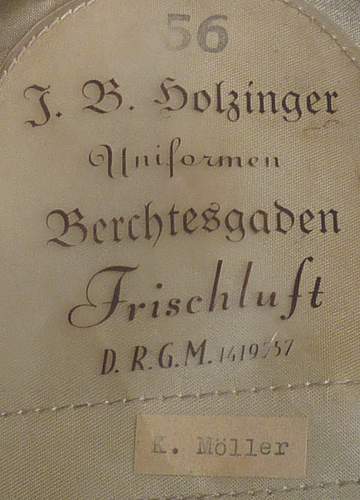 56
J. B. Holzinger
Uniformen
Berchtesgaden
Frischluft
D. R. G. M. 1419557
K. Möller